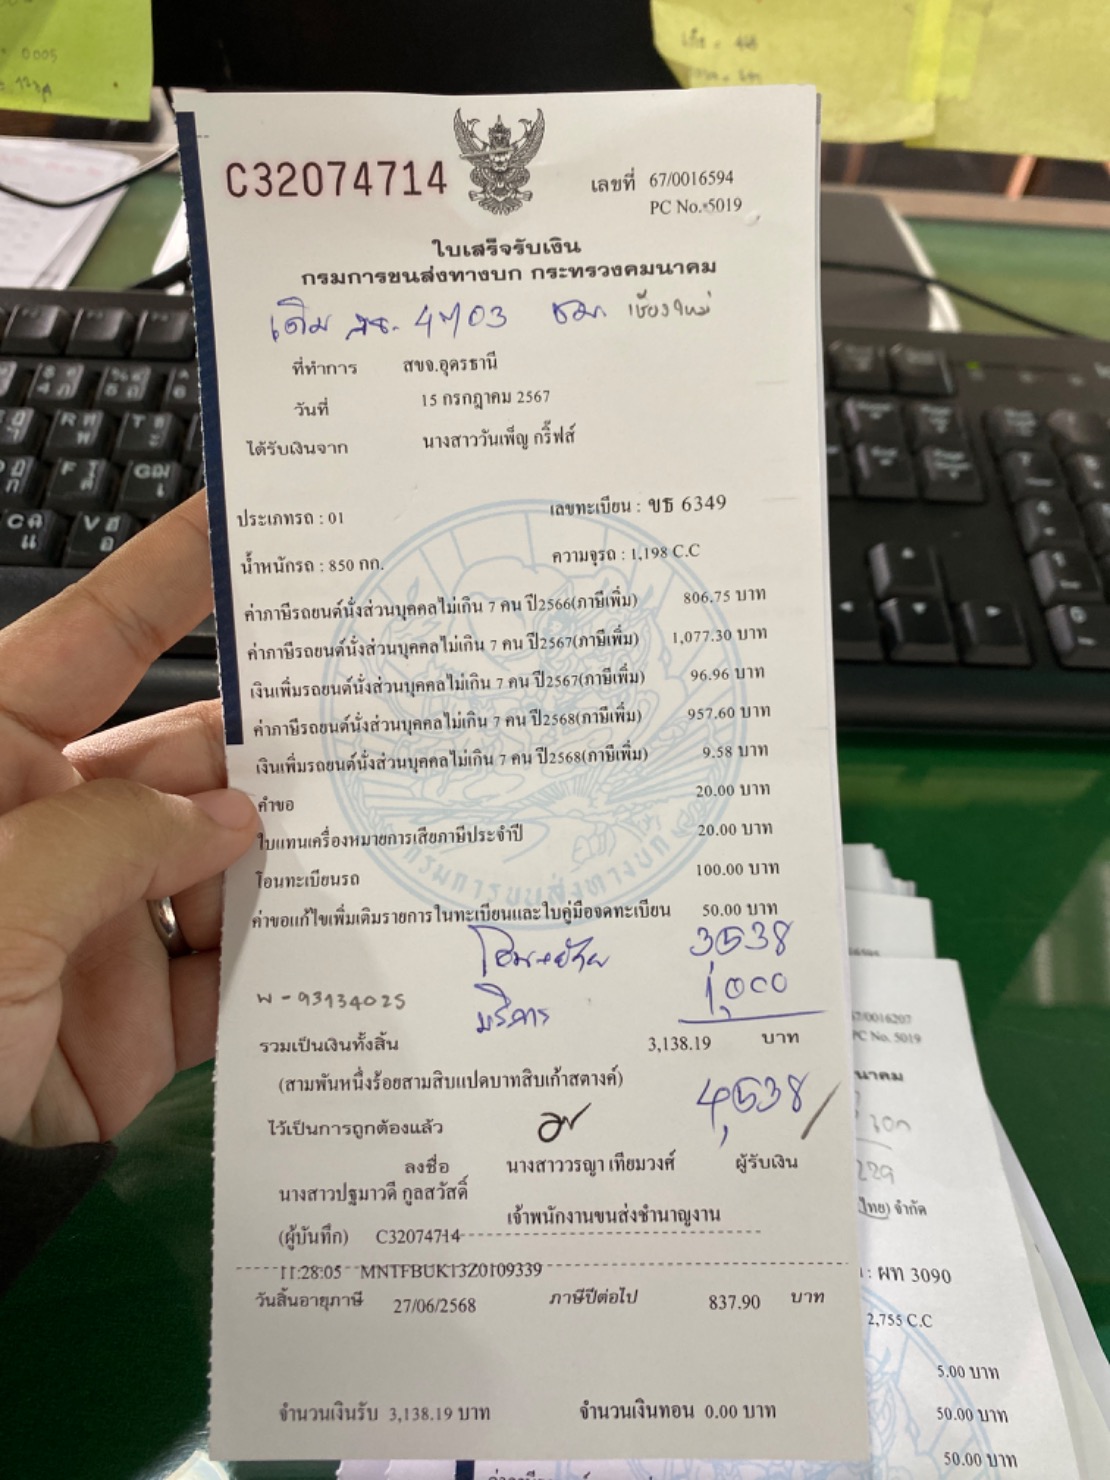 0005
C32074714
เลขที่ 67/0016594
PC No. 5019
ใบเสร็จรับเงิน
กรมการขนส่งทางบก กระทรวงคมนาคม
เดิม 4 03 เชียงใหม่
ที่ทำการ สขจ.อุดรธานี
วันที่ 15 กรกฎาคม 2567
ได้รับเงินจาก นางสาววันเพ็ญ กริ๊ฟส์
ประเภทรถ : 01 เลขทะเบียน : ขธ 6349
น้ำหนักรถ : 850 กก. ความจุรถ : 1,198 C.C
ค่าภาษีรถยนต์นั่งส่วนบุคคลไม่เกิน 7 คน ปี2566(ภาษีเพิ่ม) 806.75 บาท
ค่าภาษีรถยนต์นั่งส่วนบุคคลไม่เกิน 7 คน ปี2567(ภาษีเพิ่ม) 1,077.30 บาท
เงินเพิ่มรถยนต์นั่งส่วนบุคคลไม่เกิน 7 คน ปี2567(ภาษีเพิ่ม) 96.96 บาท
ค่าภาษีรถยนต์นั่งส่วนบุคคลไม่เกิน 7 คน ปี2568(ภาษีเพิ่ม) 957.60 บาท
เงินเพิ่มรถยนต์นั่งส่วนบุคคลไม่เกิน 7 คน ปี2568(ภาษีเพิ่ม) 9.58 บาท
คำขอ 20.00 บาท
ใบแทนเครื่องหมายการเสียภาษีประจำปี 20.00 บาท
โอนทะเบียนรถ 100.00 บาท
ค่าขอแก้ไขเพิ่มเติมรายการในทะเบียนและใบคู่มือจดทะเบียน 50.00 บาท
กรมการขนส่งทางบก
โอน+ย้าย 3,538
พ - 93134025
บริการ 1,000
รวมเป็นเงินทั้งสิ้น 3,138.19 บาท
(สามพันหนึ่งร้อยสามสิบแปดบาทสิบเก้าสตางค์)
4,538
ไว้เป็นการถูกต้องแล้ว
ลงชื่อ นางสาววรญา เทียมวงศ์ ผู้รับเงิน
นางสาวปฐมาวดี กูลสวัสดิ์
เจ้าพนักงานขนส่งชำนาญงาน
(ผู้บันทึก) C32074714
11:28:05 MNTFBUK13Z0109339
วันสิ้นอายุภาษี 27/06/2568 ภาษีปีต่อไป 837.90 บาท
จำนวนเงินรับ 3,138.19 บาท จำนวนเงินทอน 0.00 บาท
67/0016207
PC No. 5019
นาคม
229
ไทย) จำกัด
: ผท 3090
2,755 C.C
5.00 บาท
50.00 บาท
50.00 บาท